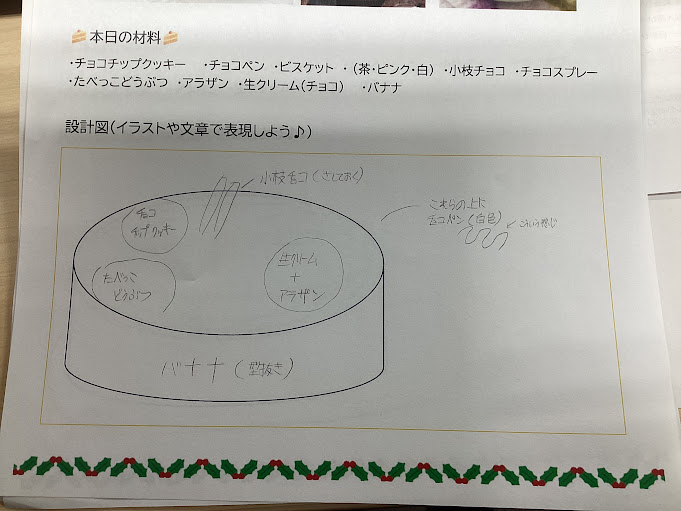 本日の材料
・チョコチップクッキー ・チョコペン ・ビスケット ・(茶・ピンク・白) ・小枝チョコ ・チョコスプレー
・たべっこどうぶつ ・アラザン ・生クリーム(チョコ) ・バナナ
設計図(イラストや文章で表現しよう♪)
小枝チョコ(さしておく)
チョコ
チップクッキー
これらの上に
チョコペン(白色)
こういう感じ
たべっこ
どうぶつ
生クリーム
+
アラザン
バナナ(型抜き)